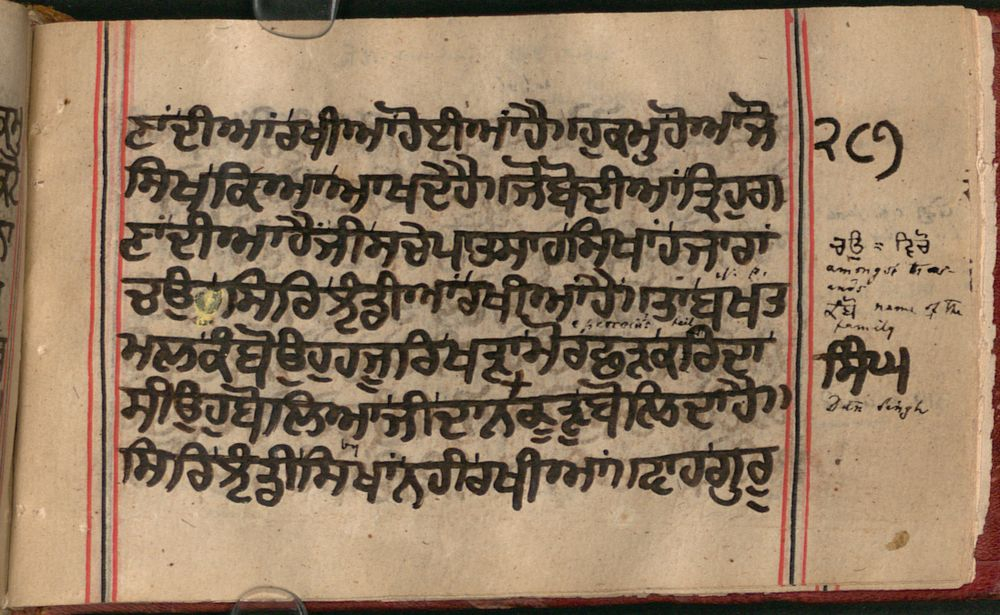 ਣਾਂਦੀਆਂਰਖੀਆਹੋਈਆਂਹੈ॥ਹੁਕਮੁਹੋਆਜੋ
ਸਿਖਕਿਆਆਖਦੇਹੈ॥ਜੋਬੋਦੀਆਂਤ੍ਰਿਹੁਰਾ
ਣਾਂਦੀਆਹੈਜੀਸਚੇਪਤਸਾਹਸਿਖਾਂਹਜਾਰਾਂ
ਚਉਸਿਰਿਭ੍ਰੰਡੀਆਂਰਖੀਆਹੈ॥ਤਾਂਬਖਤ
ਮਲਕੰਬੋਉਹੁਹਜੂਰਿਖੜਾਮੋਰਛੜਕਰਿਦਾ
ਸੀਉਹੁਬੋਲਿਆਜੀਦਾਨਬੋਲਿਦਾਹੈ॥
ਸਿਰਿਭ੍ਰੰਡੀਸਿਖਾਂਨਹੀਰਖੀਆਂ।ਵਾਹਗੁਰੂ
੨੮੭
ਚਉ = ਵਿਚੋ
amongst thous-
ands
ਕੰਬੋ name of the
family
ਸਿੰਘ
Singh